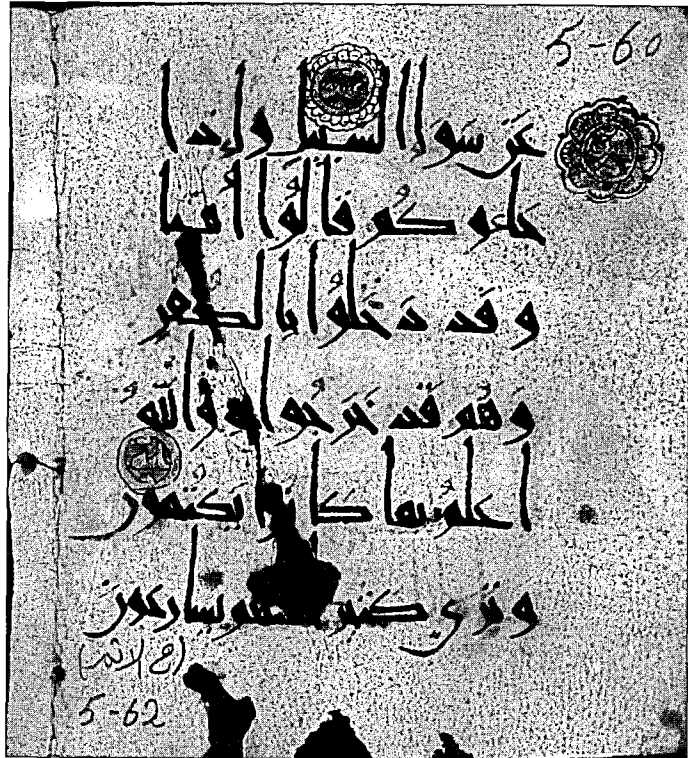 5-60
عن سوا السبيل واذا
جاءوكم قالوا امنا
وقد دخلوا بالكفر
وهم قد خرجوا به والله
اعلم بما كانوا يكتمون
وترى كثيرا منهم يسارعون
(في الاثم)
5-62